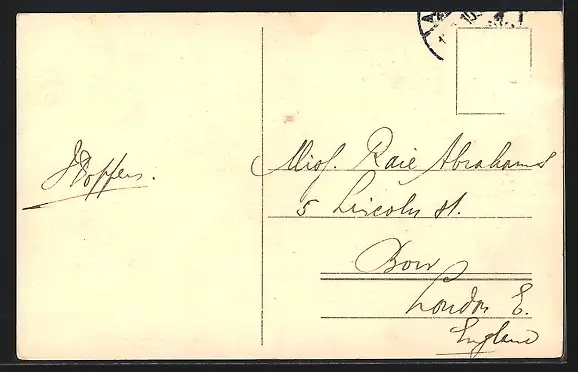 J Hoffers.
Miss. Raie Abrahams
5 Lincoln St.
Bow
London E.
England